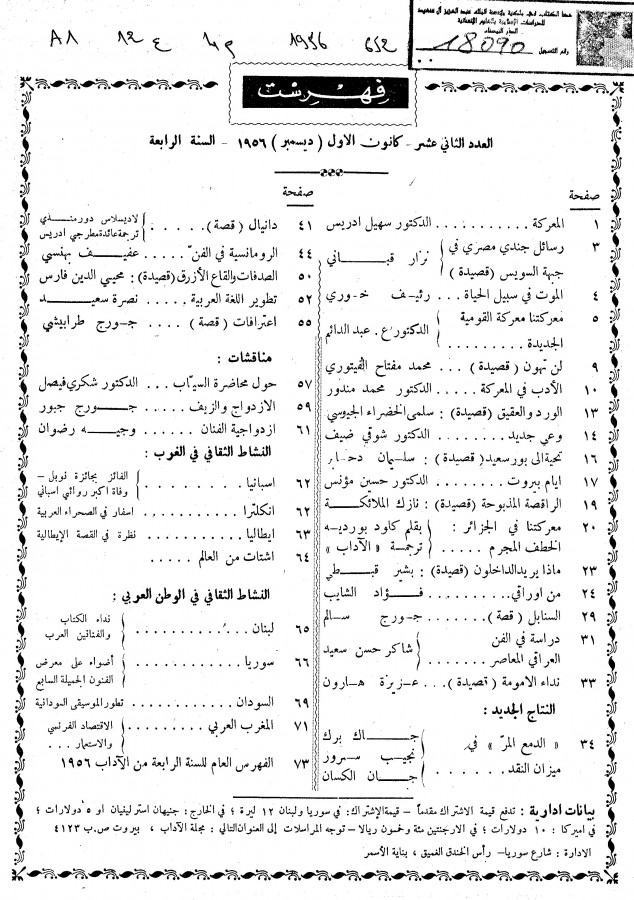 A1 12 ع م4 1956 652
18090
رقم التسجيل
فهرست
العدد الثاني عشر - كانون الاول ( ديسمبر ) ١٩٥٦ - السنة الرابعة
صفحة
١ المعركة . . . . . . . . . . الدكتور سهيل ادريس
٣ رسائل جندي مصري في جبهة السويس (قصيدة) } نزار قباني
٤ الموت في سبيل الحياة . . . رئيف خوري
٥ معركتنا معركة القومية الجديدة . . . . . . . . } الدكتور ع. عبد الدائم
٩ لن تهون ( قصيدة ) . . . محمد مفتاح الفيتوري
١٠ الأدب في المعركة . . . . . الدكتور محمد مندور
١٣ الورد والعقيق (قصيدة) : سلمى الخضراء الجيوسي
١٤ وعي جديد . . . . . . . الدكتور شوقي ضيف
١٦ تحية الى بور سعيد ( قصيدة ) : سليمان
١٧ ايام بيروت . . . . . . . الدكتور حسين مؤنس
١٩ الراقصة المذبوحة (قصيدة) : نازك الملائكة
٢٠ معركتنا في الجزائر : الخطف المجرم . . . . . } بقلم كلود بورديه ترجمة « الآداب »
٢٣ ماذا يريد الداخلون (قصيدة) : بشير قبطي
٢٤ من اوراقي . . . . . . . . فؤاد الشايب
٢٩ السنابل ( قصة ) . . . . . جورج سالم
٣١ دراسة في الفن العراقي المعاصر . . . . . . } شاكر حسن سعيد
٣٣ نداء الامومة ( قصيدة ) . . عزيزة هارون
النتاج الجديد :
٣٤ « الدمع المرّ » في ميزان النقد . . . . . . . } جاك برك نجيب سرور جان الكسان
صفحة
٤١ دانيال ( قصة ) . . . . . } لاديسلاس دورمندي ترجمة عائدة مطرجي ادريس
٤٤ الرومانسية في الفنّ . . . . عفيف بهنسي
٥٠ الصدفات والقاع الأزرق (قصيدة) : محيي الدين فارس
٥٢ تطوير اللغة العربية . . . . . نصرة سعيد
٥٥ اعترافات ( قصة ) . . . . جورج طرابيشي
مناقشات :
٥٧ حول محاضرة السيّاب . . . الدكتور شكري فيصل
٥٩ الازدواج والزيف . . . . . جورج جبور
٦١ ازدواجية الفنان . . . . . وجيه رضوان
النشاط الثقافي في الغرب :
٦٢ اسبانيا . . . . . . . } الفائز بجائزة نوبل - وفاة اكبر روائي اسباني
٦٢ انكلترا . . . . . . . اسفار في الصحراء العربية
٦٣ ايطاليا . . . . . . . نظرة في القصة الإيطالية
٦٤ اشتات من العالم . . . . .
النشاط الثقافي في الوطن العربي :
٦٥ لبنان . . . . . . . . . . } نداء الكتاب والفنانين العرب
٦٦ سوريا . . . . . . . . . . } أضواء على معرض الفنون الجميلة السابع
٦٩ السودان . . . . . . . . تطور الموسيقى السودانية
٧١ المغرب العربي . . . . . . . } الاقتصاد الفرنسي والاستعمار . . . .
٧٣ الفهرس العام للسنة الرابعة من الآداب ١٩٥٦
بيانات ادارية : تدفع قيمة الاشتراك مقدماً - قيمة الإشتراك: في سوريا ولبنان ١٢ ليرة ؛ في الخارج: جنيهان استرلينيان او ٥ دولارات ؛
في اميركا : ١٠ دولارات ؛ في الارجنتين مئة وخمسون ريالا - توجه المراسلات إلى العنوان التالي : مجلة الآداب ، بيروت ص.ب ٤١٢٣
الادارة : شارع سوريا - رأس الخندق الغميق ، بناية الأسمر